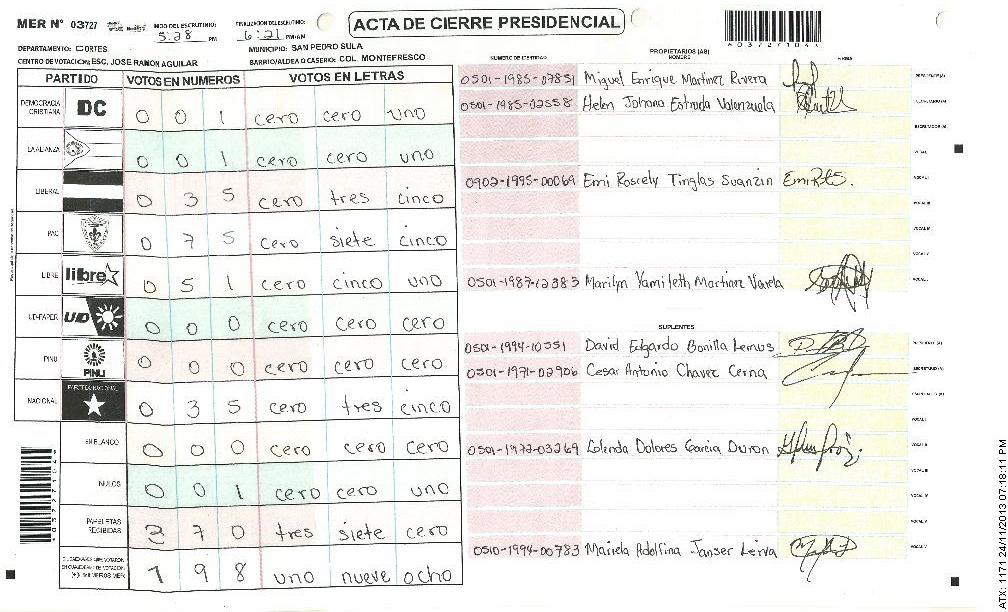 MER N° 03727
INICIO DEL ESCRUTINIO: 5:28 PM
FINALIZACION DEL ESCRUTINIO: 6:21 PM/AM
ACTA DE CIERRE PRESIDENCIAL
4037271044
DEPARTAMENTO: CORTES
MUNICIPIO: SAN PEDRO SULA
CENTRO DE VOTACION: ESC. JOSE RAMON AGUILAR
BARRIO/ALDEA O CASERIO: COL. MONTEFRESCO
PARTIDO VOTOS EN NUMEROS VOTOS EN LETRAS
DEMOCRACIA CRISTIANA DC 0 0 1 cero cero uno
LA ALIANZA 0 0 1 cero cero uno
LIBERAL 0 3 5 cero tres cinco
PAC 0 7 5 cero siete cinco
LIBRE libre 0 5 1 cero cinco uno
UD-FAPER UD 0 0 0 cero cero cero
PINU PINU 0 0 0 cero cero cero
NACIONAL PARTIDO NACIONAL 0 3 5 cero tres cinco
EN BLANCO 0 0 0 cero cero cero
NULOS 0 0 1 cero cero uno
PAPELETAS RECIBIDAS 3 7 0 tres siete cero
1 9 8 uno nueve ocho
PROPIETARIOS (AS)
NUMERO DE IDENTIDAD NOMBRE FIRMA
0501-1985-07851 Miguel Enrique Martinez Rivera PRESIDENTE (A)
0501-1985-02558 Helen Johana Estrada Valenzuela SECRETARIO (A)
ESCRUTADOR (A)
VOCAL I
0902-1995-00069 Emi Roscely Tinglas Suanzin VOCAL II
VOCAL III
VOCAL IV
VOCAL V
0501-1987-12383 Marilyn Yamileth Martinez Varela
SUPLENTES
0501-1994-10351 David Edgardo Bonilla Lemus PRESIDENTE (A)
0501-1971-02906 Cesar Antonio Chavez Cerna SECRETARIO (A)
ESCRUTADOR (A)
VOCAL I
0501-1972-03269 Lolenda Dolores Garcia Duron VOCAL II
VOCAL III
VOCAL IV
VOCAL V
0510-1994-00783 Mariela Adolfina Janser Leiva
4037271044
ATX: 1171 24/11/2013 07:18:11 PM